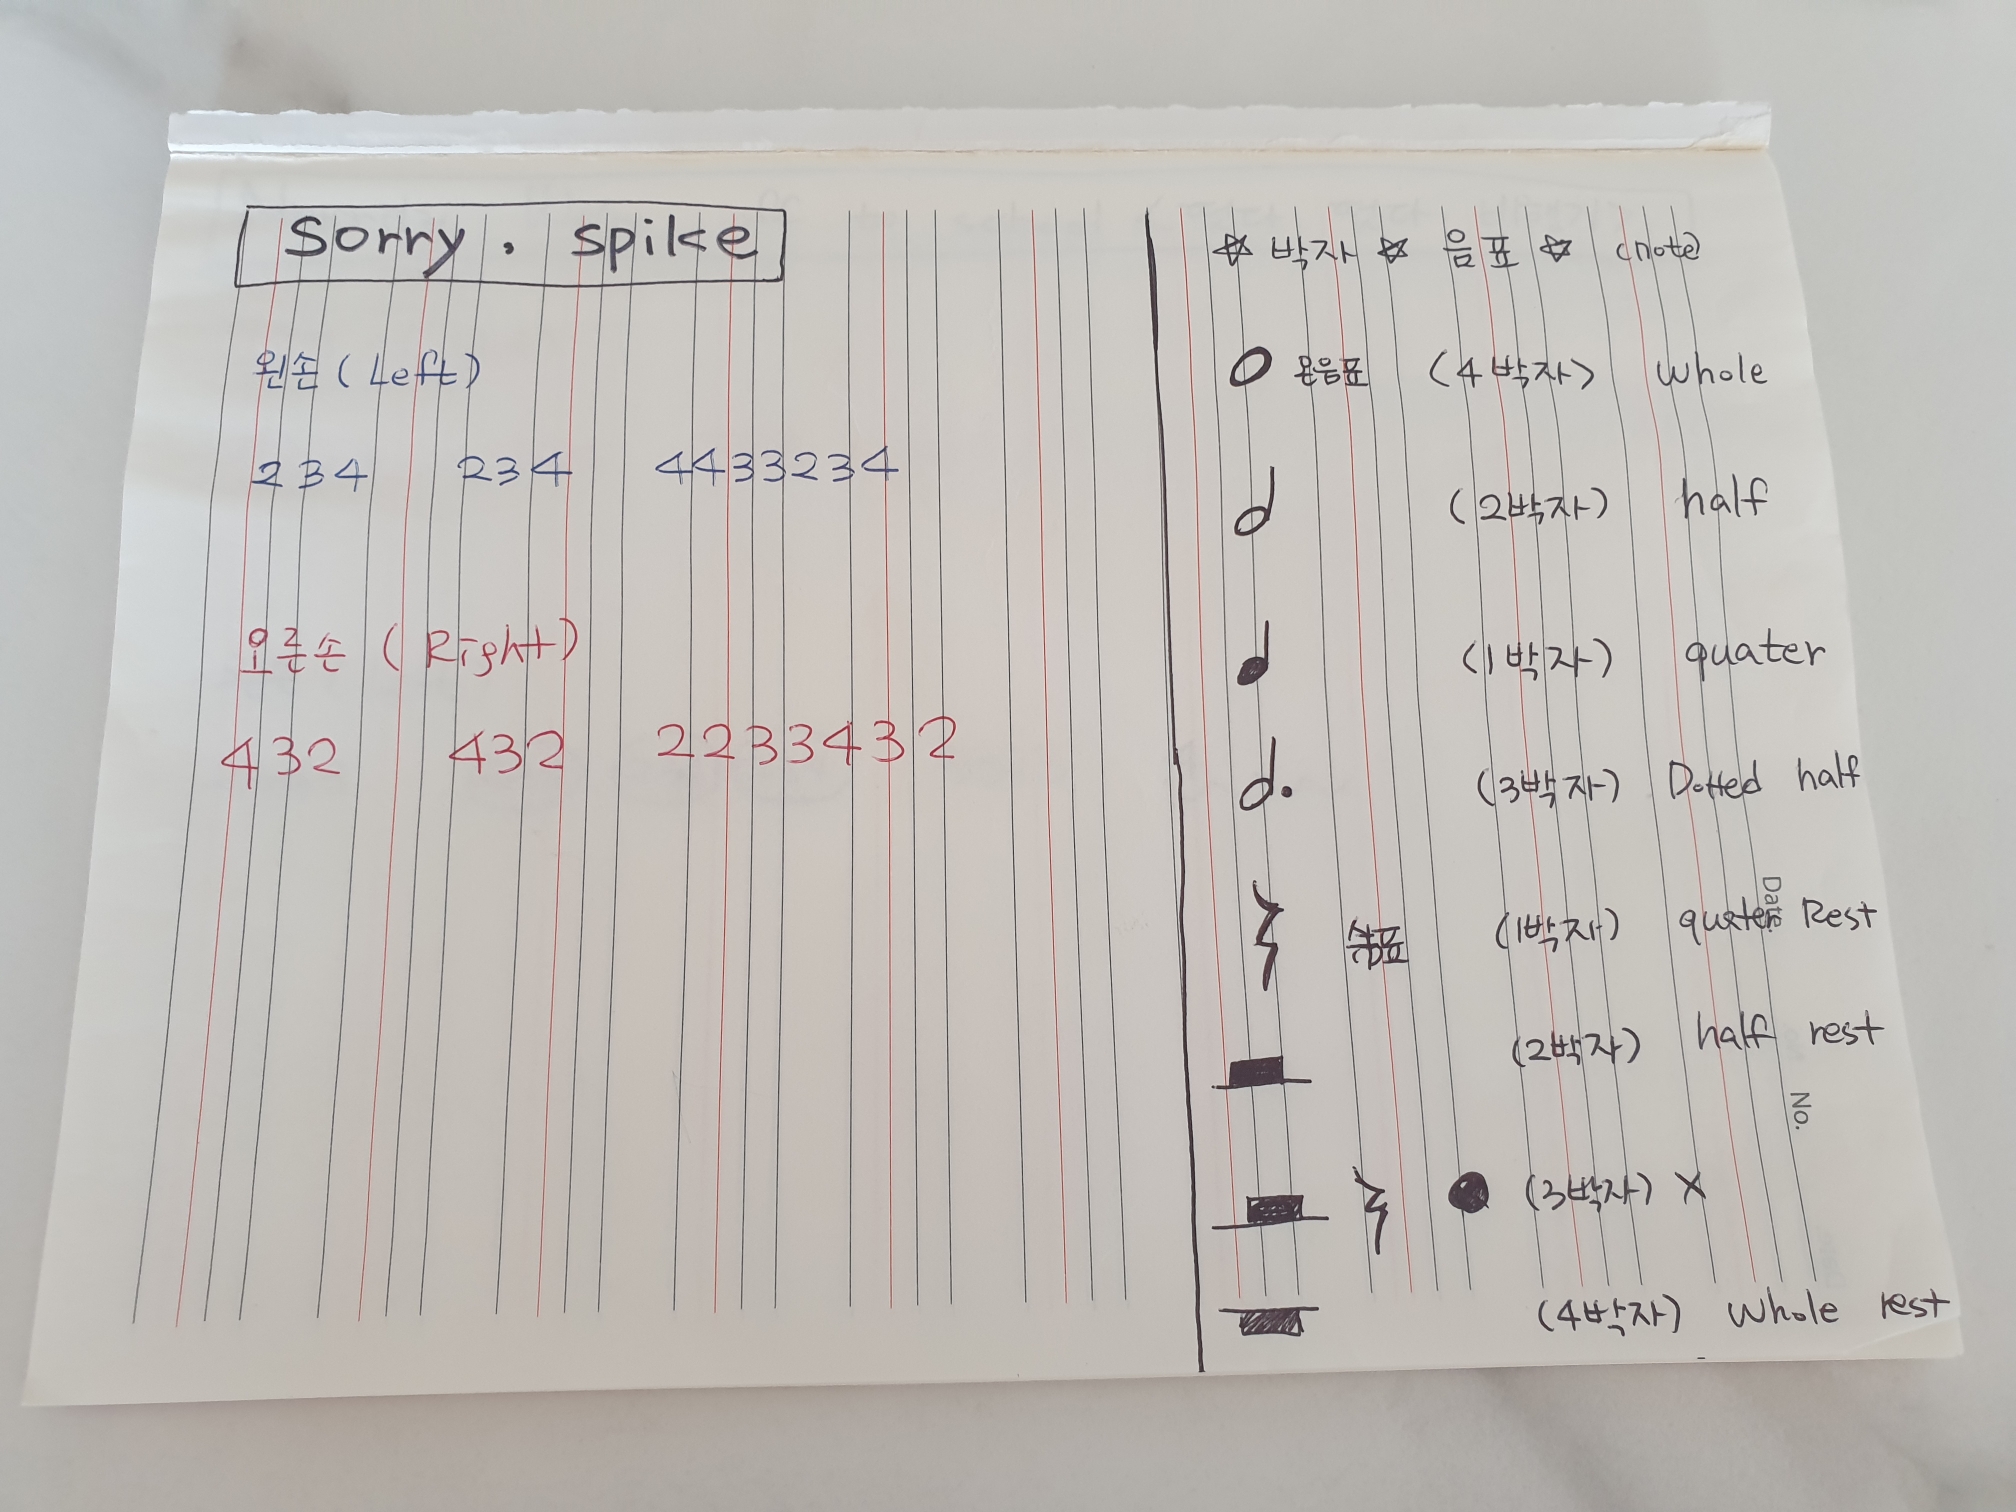 Sorry. spike
왼손 (Left)
2 3 4 2 3 4 4 4 3 3 2 3 4
오른손 (Right)
4 3 2 4 3 2 2 2 3 3 4 3 2
☆ 박자 ☆ 음표 ☆ (note)
온음표 (4박자) whole
(2박자) half
(1박자) quater
(3박자) Dotted half
쉼표 (1박자) quater Rest
(2박자) half rest
(3박자) X
(4박자) whole rest
Date.
No.